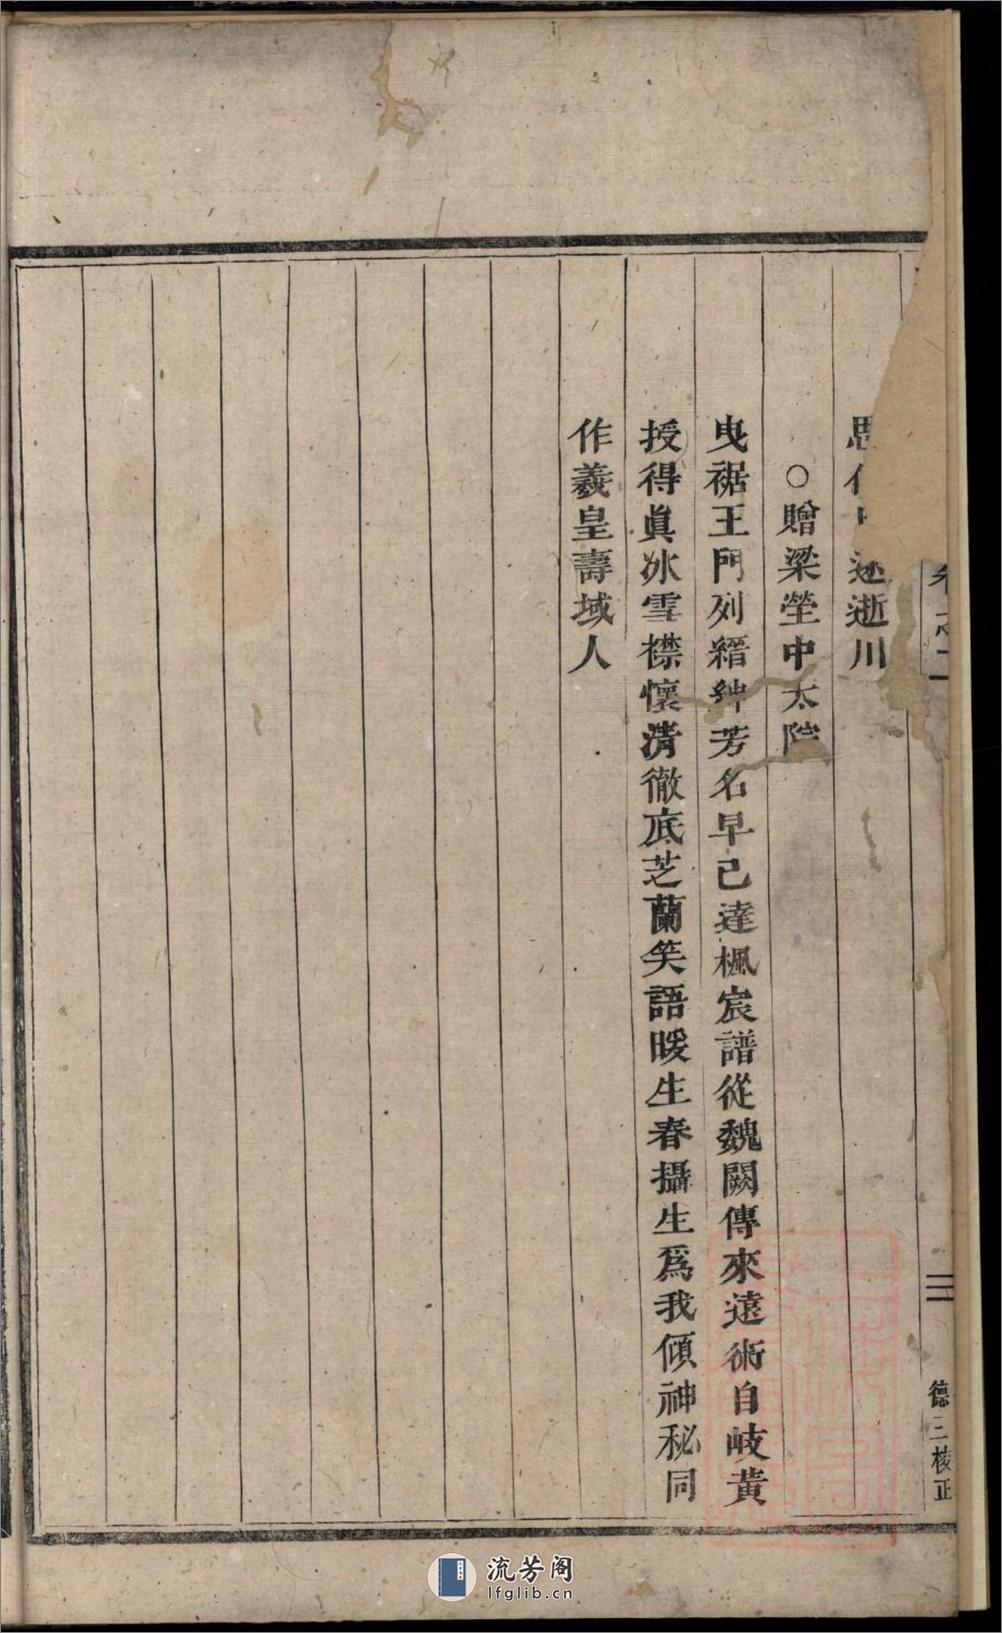 思
逝川
○贈梁瑩中太院
曳裾王門列縉紳芳名早已達楓宸譜從魏闕傳來遠術自岐黃
授得眞冰雪襟懷清徹底芝蘭笑語暖生春攝生爲我傾神秘同
作羲皇壽域人
三
德三校正
流芳阁
lfglib.cn